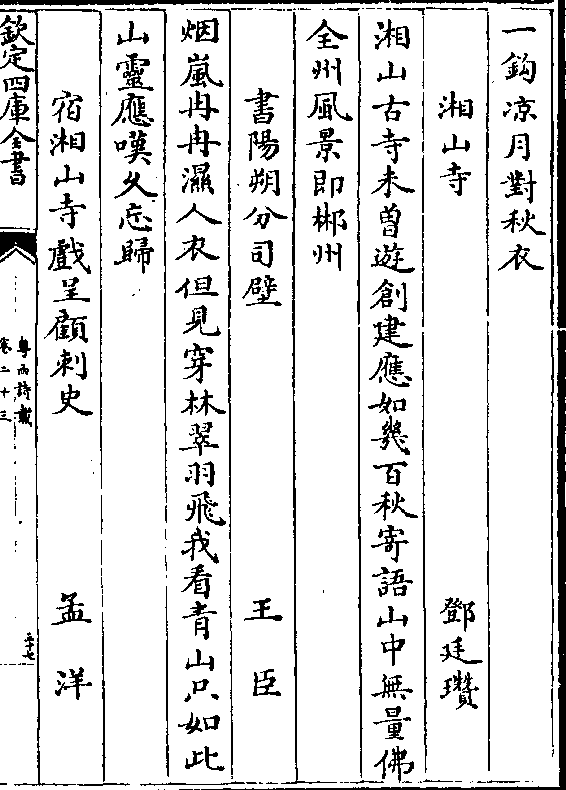 一鈎凉月對秋衣
湘山寺　鄧廷瓚
湘山古寺未曾遊創建應如幾百秋寄語山中無量佛
全州風景即郴州
書陽朔分司壁　王臣
烟嵐冉冉濕人衣但見穿林翠羽飛我看青山只如此
山靈應嘆久忘歸
宿湘山寺戲呈顧刺史　孟洋
欽定四庫全書
粵西詩載
卷二十三